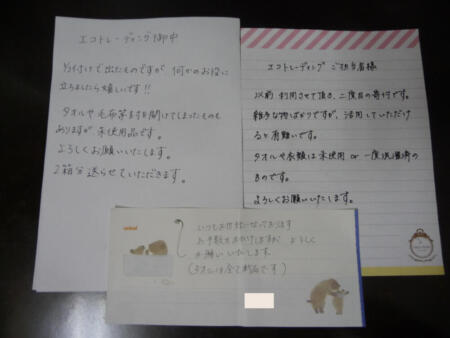 エコトレーディング御中
片付けで出たものですが 何かのお役に
立ちましたら嬉しいです!!
タオルや毛布等封を開けてしまったものも
ありますが未使用品です。
よろしくお願いいたします。
2箱分送らせていただきます。
エコトレーディング ご担当者様
以前利用させて頂き、二度目の寄付です。
雑多な物ばかりですが、活用していただけ
ると有難いです。
タオルや衣類は未使用 or 一度洗濯済の
ものです。
よろしくお願いいたします。
いつもお世話になっております
お手数をおかけしますが、よろしく
お願いいたします。
(タオルは全て新品です)